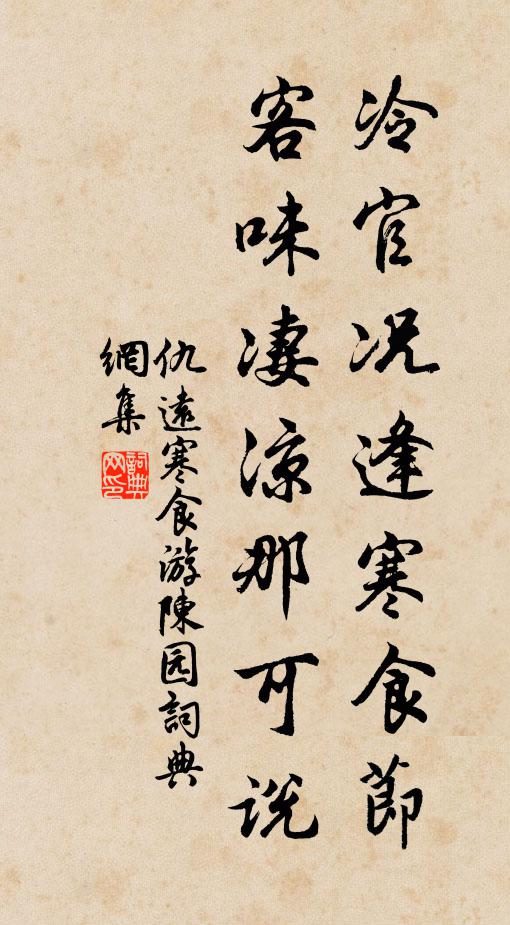 冷官况逢寒食節
客味凄凉那可説
仇遠寒食游陳园詞典
網集
詞典網印